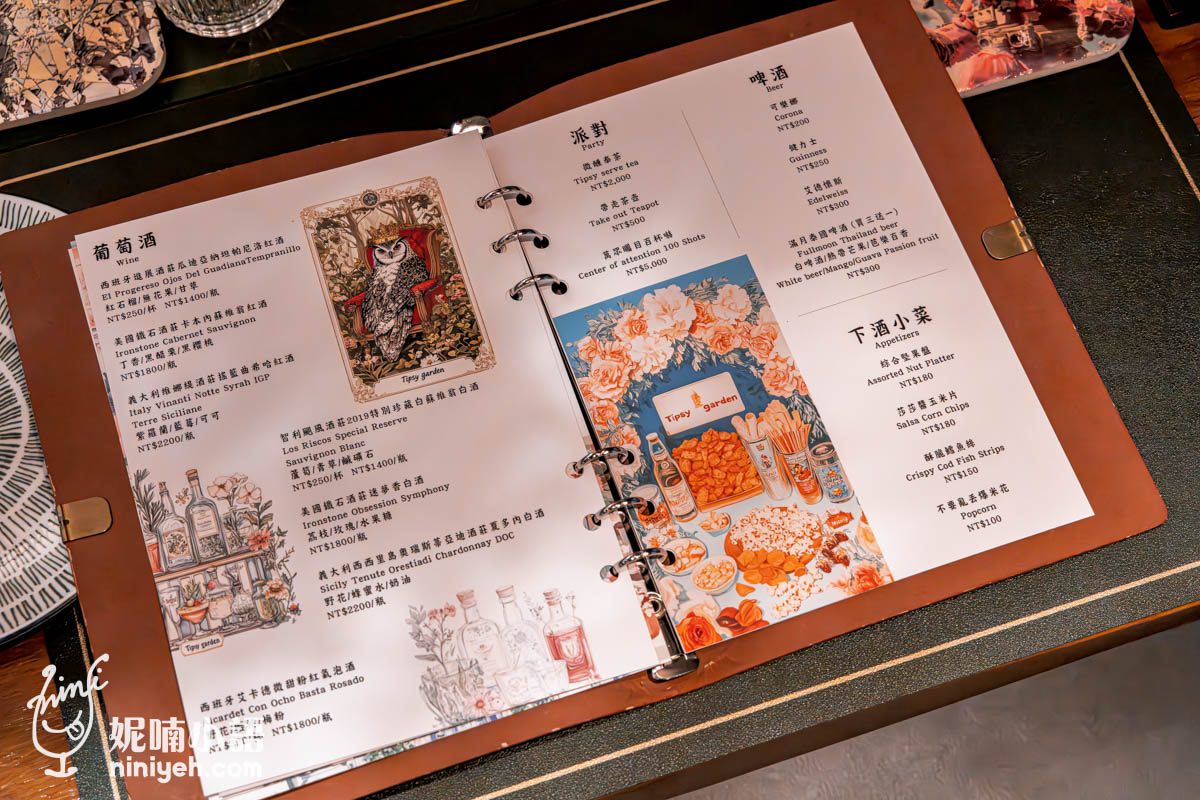 葡萄酒
Wine
西班牙進展酒莊瓜迪亞納坦帕尼洛紅酒
El Progereso Ojos Del GuadianaTempranillo
紅石榴/無花果/甘草
NT$250/杯 NT$1400/瓶
美國鐵石酒莊卡本內蘇維翁紅酒
Ironstone Cabernet Sauvignon
丁香/黑醋栗/黑櫻桃
NT$1800/瓶
義大利維娜綫酒莊搖籃曲希哈紅酒
Italy Vinanti Notte Syrah IGP
Terre Siciliane
紫羅蘭/藍莓/可可
NT$2200/瓶
Tipsy garden
智利颶風酒莊2019特別珍藏白蘇維翁白酒
Los Riscos Special Reserve
Sauvignon Blanc
蘆筍/青草/鹹礦石
NT$250/杯 NT$1400/瓶
美國鐵石酒莊迷夢香白酒
Ironstone Obsession Symphony
荔枝/玫瑰/水果糖
NT$1800/瓶
義大利西西里島奧瑞斯蒂亞迪酒莊夏多內白酒
Sicily Tenute Orestiadi Chardonnay DOC
野花/蜂蜜水/奶油
NT$2200/瓶
Tipsy garden
西班牙艾卡德微甜粉紅氣泡酒
card​et Con Ocho Basta Rosado
梅粉
NT$1800/瓶
派對
Party
微醺奉茶
Tipsy serve tea
NT$2,000
帶走茶壺
Take out Teapot
NT$500
萬眾矚目百杯嚇
Center of attention 100 Shots
NT$5,000
Tipsy garden
啤酒
Beer
可樂娜
Corona
NT$200
健力士
Guinness
NT$250
艾德懷斯
Edelweiss
NT$300
滿月泰國啤酒(買三送一)
Fullmoon Thailand beer
白啤酒/熱帶芒果/芭樂百香
White beer/Mango/Guava Passion fruit
NT$300
下酒小菜
Appetizers
綜合堅果盤
Assorted Nut Platter
NT$180
莎莎醬玉米片
Salsa Corn Chips
NT$180
酥脆鱈魚絲
Crispy Cod Fish Strips
NT$150
不要亂丟爆米花
Popcorn
NT$100
nini
妮喃小語
niniyeh.com